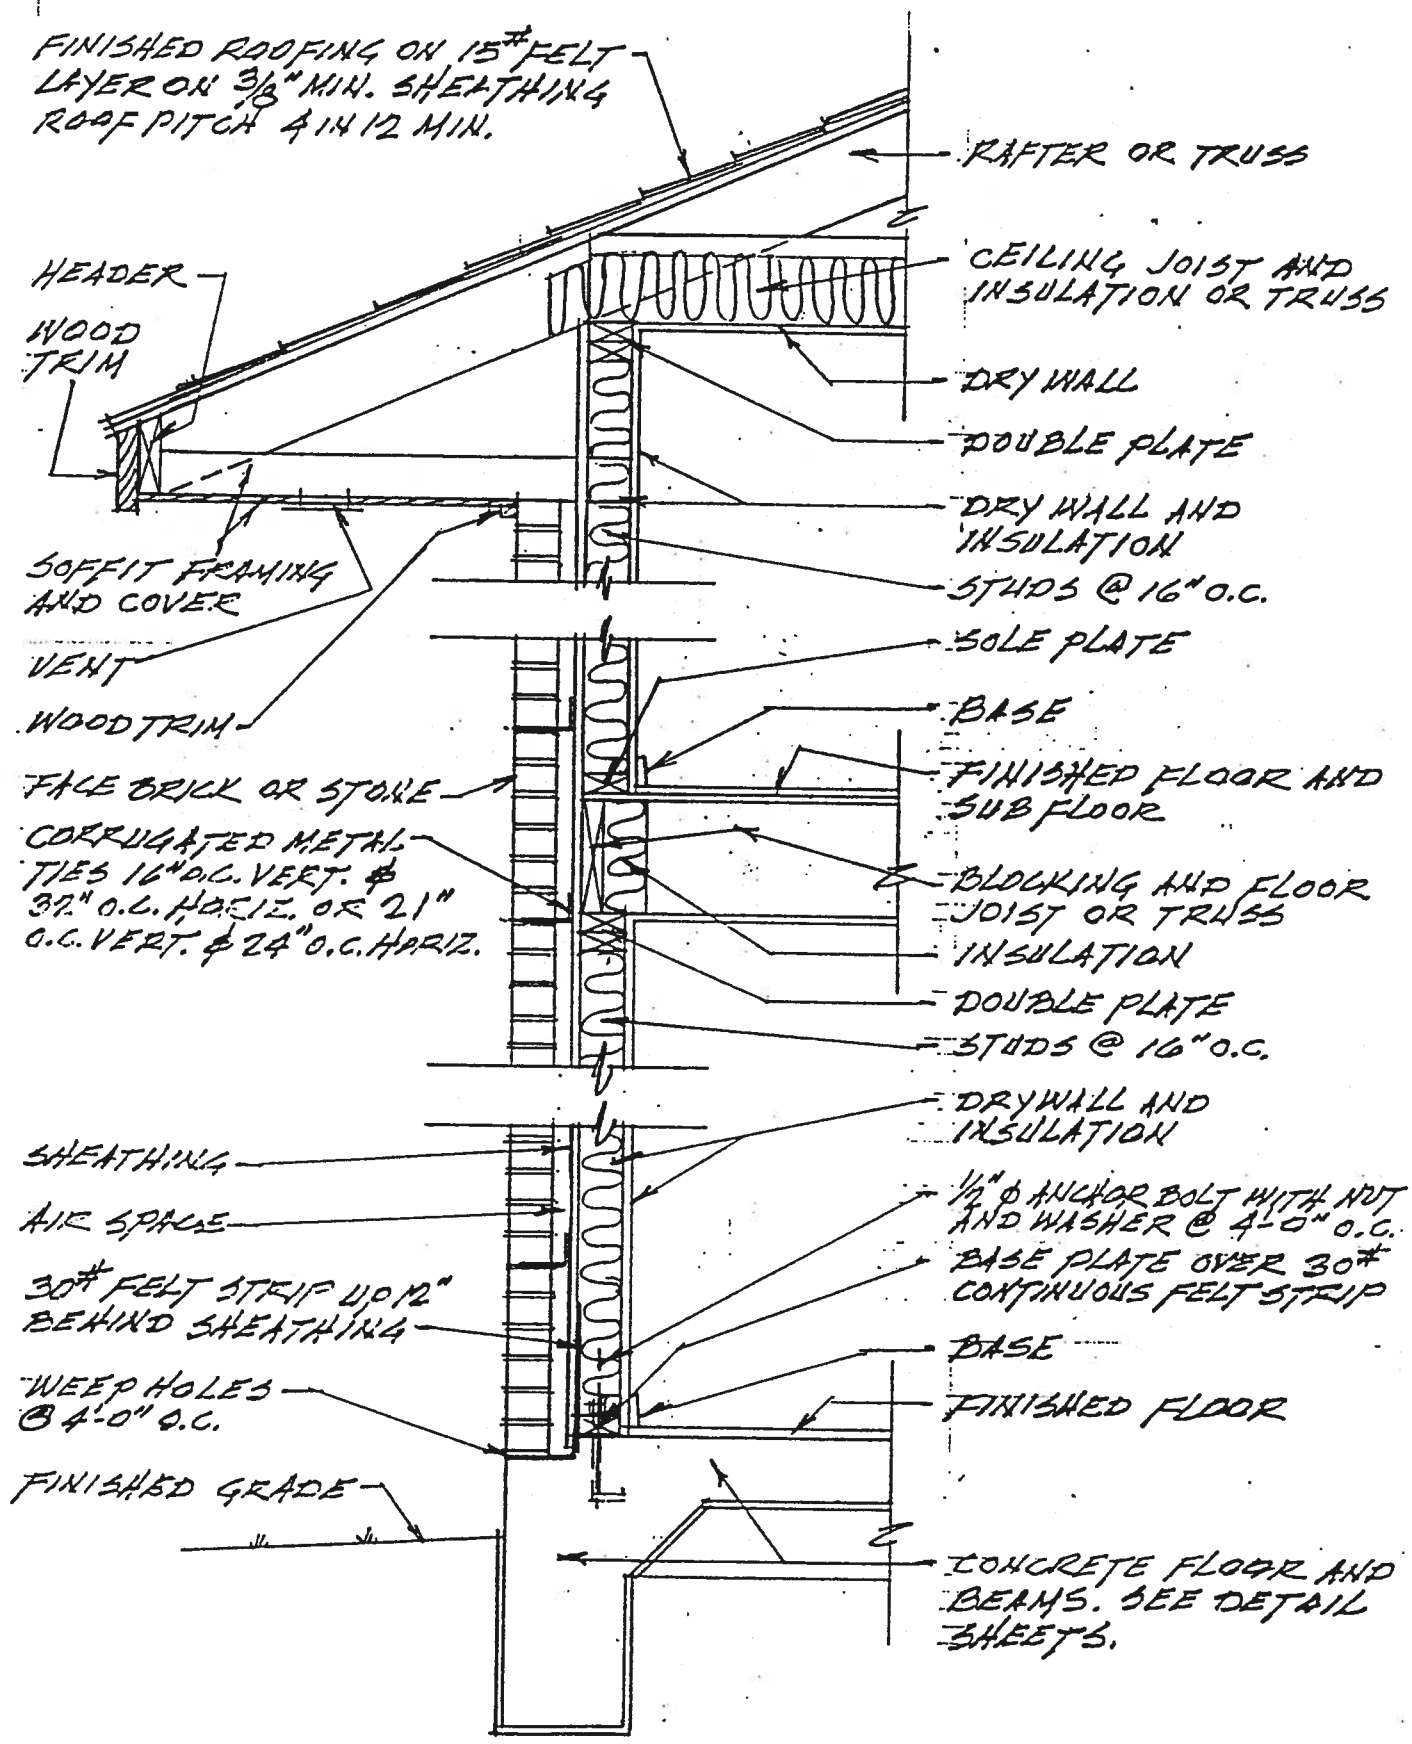 FINISHED ROOFING ON 15# FELT
LAYER ON 3/8" MIN. SHEATHING
ROOF PITCH 4 IN 12 MIN.
HEADER
WOOD
TRIM
SOFFIT FRAMING
AND COVER
VENT
WOOD TRIM
FACE BRICK OR STONE
CORRUGATED METAL
TIES 16" O.C. VERT. &
32" O.C. HORIZ. OR 21"
O.C. VERT. & 24" O.C. HORIZ.
SHEATHING
AIR SPACE
30# FELT STRIP UP 12"
BEHIND SHEATHING
WEEP HOLES
@ 4'-0" O.C.
FINISHED GRADE
RAFTER OR TRUSS
CEILING JOIST AND
INSULATION OR TRUSS
DRY WALL
DOUBLE PLATE
DRY WALL AND
INSULATION
STUDS @ 16" O.C.
SOLE PLATE
BASE
FINISHED FLOOR AND
SUB FLOOR
BLOCKING AND FLOOR
JOIST OR TRUSS
INSULATION
DOUBLE PLATE
STUDS @ 16" O.C.
DRYWALL AND
INSULATION
1/2" φ ANCHOR BOLT WITH NUT
AND WASHER @ 4-0" O.C.
BASE PLATE OVER 30#
CONTINUOUS FELT STRIP
BASE
FINISHED FLOOR
CONCRETE FLOOR AND
BEAMS. SEE DETAIL
SHEETS.